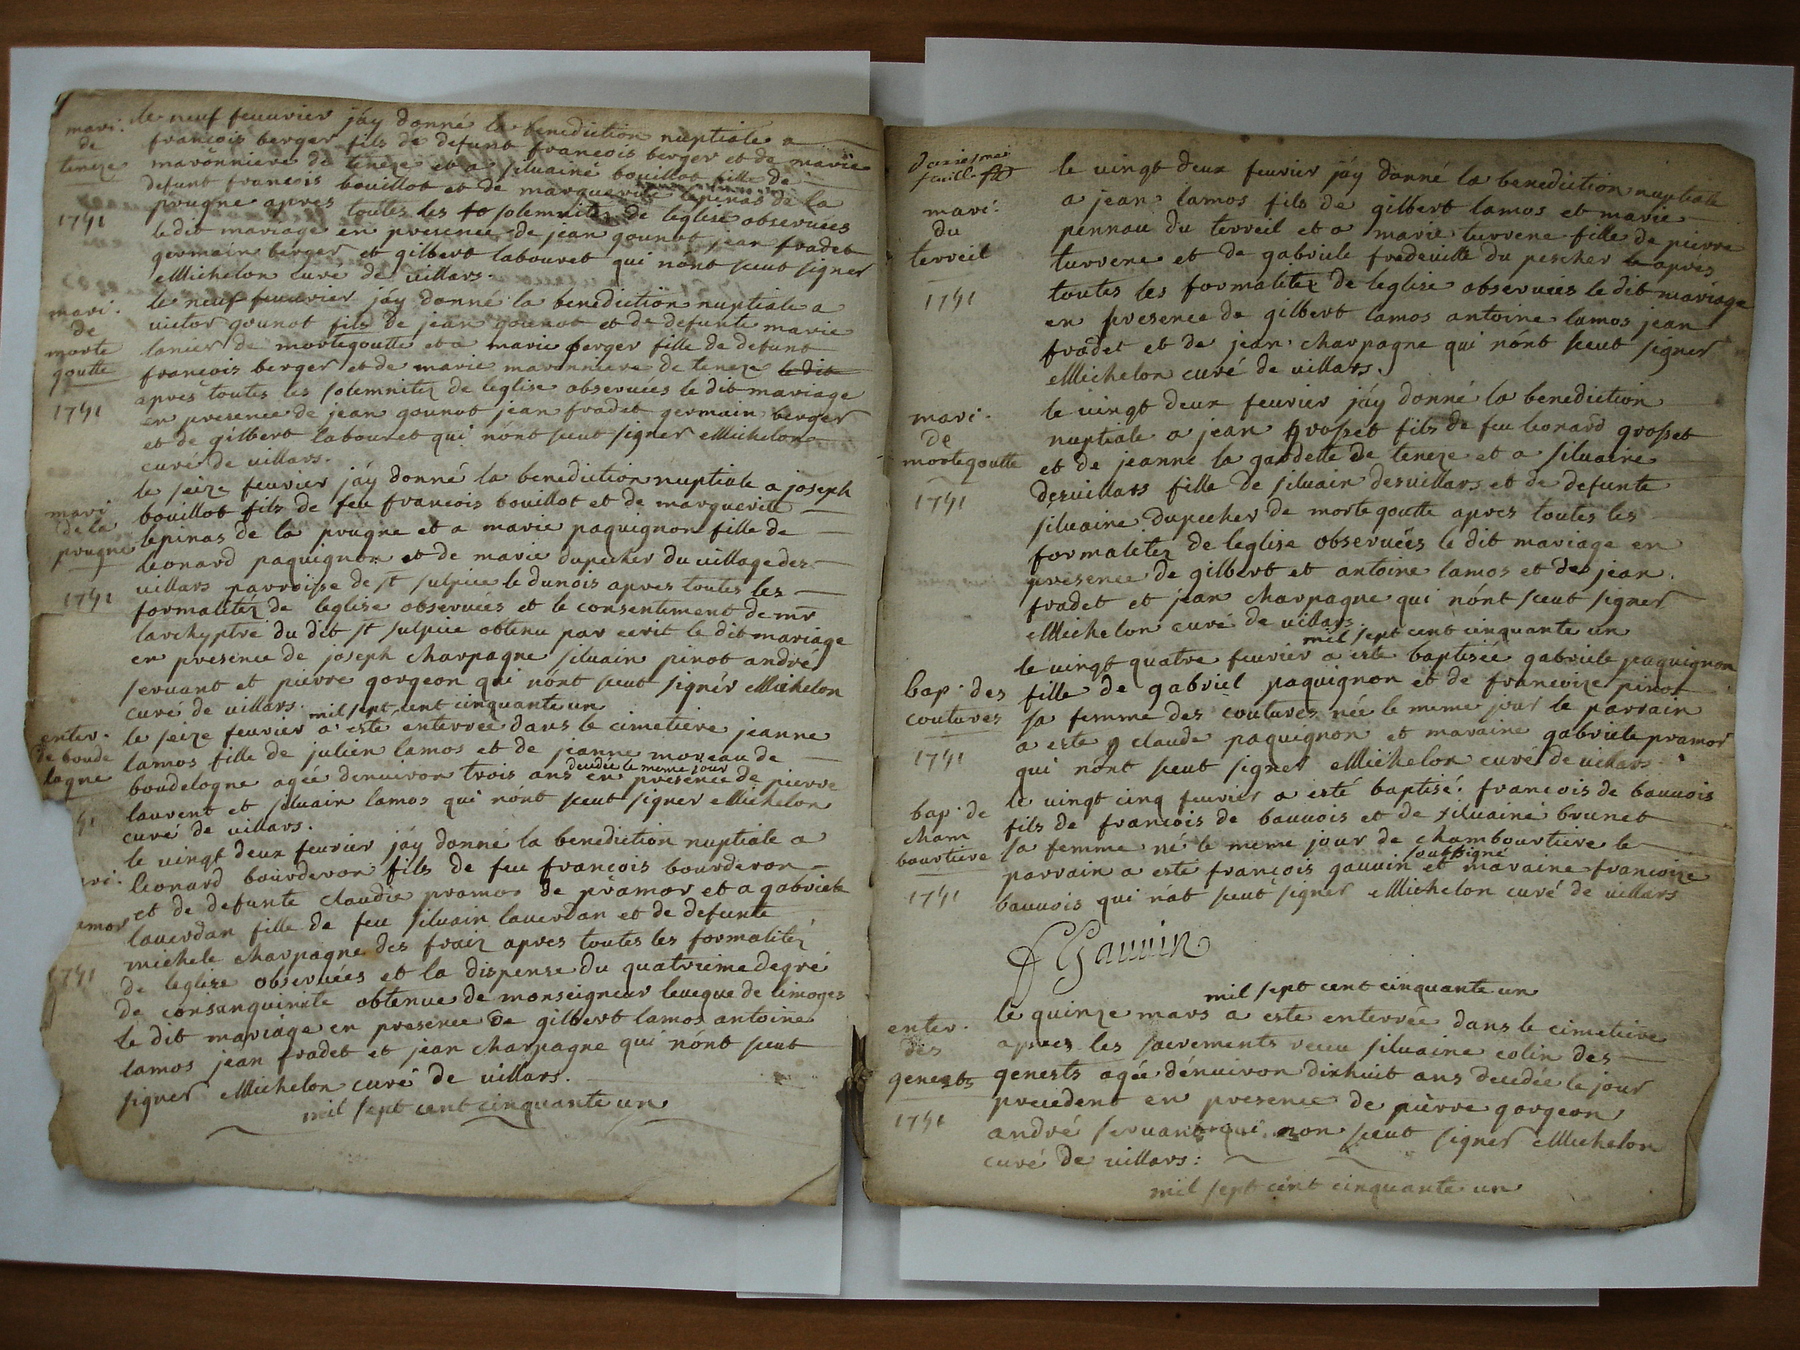 mari.
de
teneze
1751
le neuf feuurier jáy donné la benediction nuptiale a
françois berger fils de defunt francois berger et de marie
maronniere de teneze et a siluaine bouillot fille de
defunt francois bouillot et de marguerite lepinas de la
prugne apres toutes les solemnitez de leglise obseruées
le dit mariage en presence de jean gounot jean fradet
germain berger et gilbert labouret qui nónt sceut signer
Michelon curé de uillars.
mari.
de
morte
goutte
1751
le neuf feuurier jáy donné la benediction nuptiale a
uictor gounot fils de jean gounot et de defunte marie
lanier de mortegoutte et a marie berger fille de defunt
francois berger et de marie maronniere de teneze le dit
apres toutes les solemnitez de leglise obseruées le dit mariage
en presence de jean gounot jean fradet germain berger
et de gilbert labouret qui nónt sceut signer Michelon
curé de uillars.
mari
de la
prugne
1751
le seize feurier jáy donné la benediction nuptiale a joseph
bouillot fils de feu francois bouillot et de marguerite
lepinas de la prugne et a marie paquignon fille de
leonard paquignon et de marie dupecher du uillage des
uillars parroisse de st sulpice le dunois apres toutes les
formalitéz de leglise obseruées et le consentiment de mr
larchyptre du dit st sulpice obtenu par ecrit le dit mariage
en presence de joseph charpagne siluain pinot andré
seruant et pierre gorgeon qui nónt sceut signér Michelon
curé de uillars.
mil sept cent cinquante un
enter.
de boude
logne
le seize feurier a esté enterrée dans le cimetiere jeanne
lamos fille de julien lamos et de jeanne moreau de
boudelogne agée denuiron trois ans decedée le meme jour en presence de pierre
laurent et siluain lamos qui nónt sceut signer Michelon
curé de uillars.
1751
le uingt deux feurier jáy donné la benediction nuptiale a
leonard bourderon fils de feu françois bourderon
et de defunte claudie pramor de pramor et a gabriele
lauerdan fille de feu siluain lauerdan et de defunte
michele charpagne des fraiz apres toutes les formalitéz
de leglise obseruées et la dispense du quatrieme degré
de consanguinite obtenue de monseigneur leueque de limoges
le dit mariage en presence de gilbert lamos antoine
lamos jean fradet et jean charpagne qui nónt sceut
signer Michelon curé de uillars.
mil sept cent cinquante un
mari.
du
terreil
1751
le uingt deux feurier jáy donné la benediction nuptiale
a jean lamos fils de gilbert lamos et marie
pennau du terreil et a marie turrene fille de pierre
turrene et de gabriele fredeuille du pescher apres
toutes les formalitez de leglise obseruées le dit mariage
en presence de gilbert lamos antoine lamos jean
fradet et de jean charpagne qui nónt sceut signer
Michelon curé de uillars.
mari.
de
mortegoutte
1751
le uingt deux feurier jáy donné la benediction
nuptiale a jean grosset fils de feu leonard grosset
et de jeanne la gaudette de teneze et a siluaine
desuillars fille de siluain desuillars et de defunte
siluaine dupecher de mortegoutte apres toutes les
formalitez de leglise obseruées le dit mariage en
presence de gilbert et antoine lamos et de jean
fradet et jean charpagne qui nónt sceut signer
Michelon curé de uillars.
mil sept cent cinquante un
bap. des
coutures
1751
le uingt quatre feurier a este baptisée gabriele paquignon
fille de gabriel paquignon et de francoize pinot
sa femme des coutures née le meme jour le parrain
a este claude paquignon et maraine gabriele pramor
qui nónt sceut signer Michelon curé de uillars
bap. de
cham
bourtiere
1751
le uingt cinq feurier a esté baptisé francois de bauuois
fils de francois de bauuois et de siluaine brunet
sa femme né le meme jour de chambourtiere le
parrain a este françois gauuin soussigné et maraine francoize
bauuois qui nát sceut signer Michelon curé de uillars
f Gauuin
mil sept cent cinquante un
enter.
des
genests
1751
le quinze mars a este enterrée dans le cimetiere
apres les sacrements receu siluaine colin des
genests agée dénuiron dixhuit ans decedée le jour
precedent en presence de pierre gorgeon
andré seruant qui non sceut signer Michelon
curé de uillars:
mil sept cent cinquante un